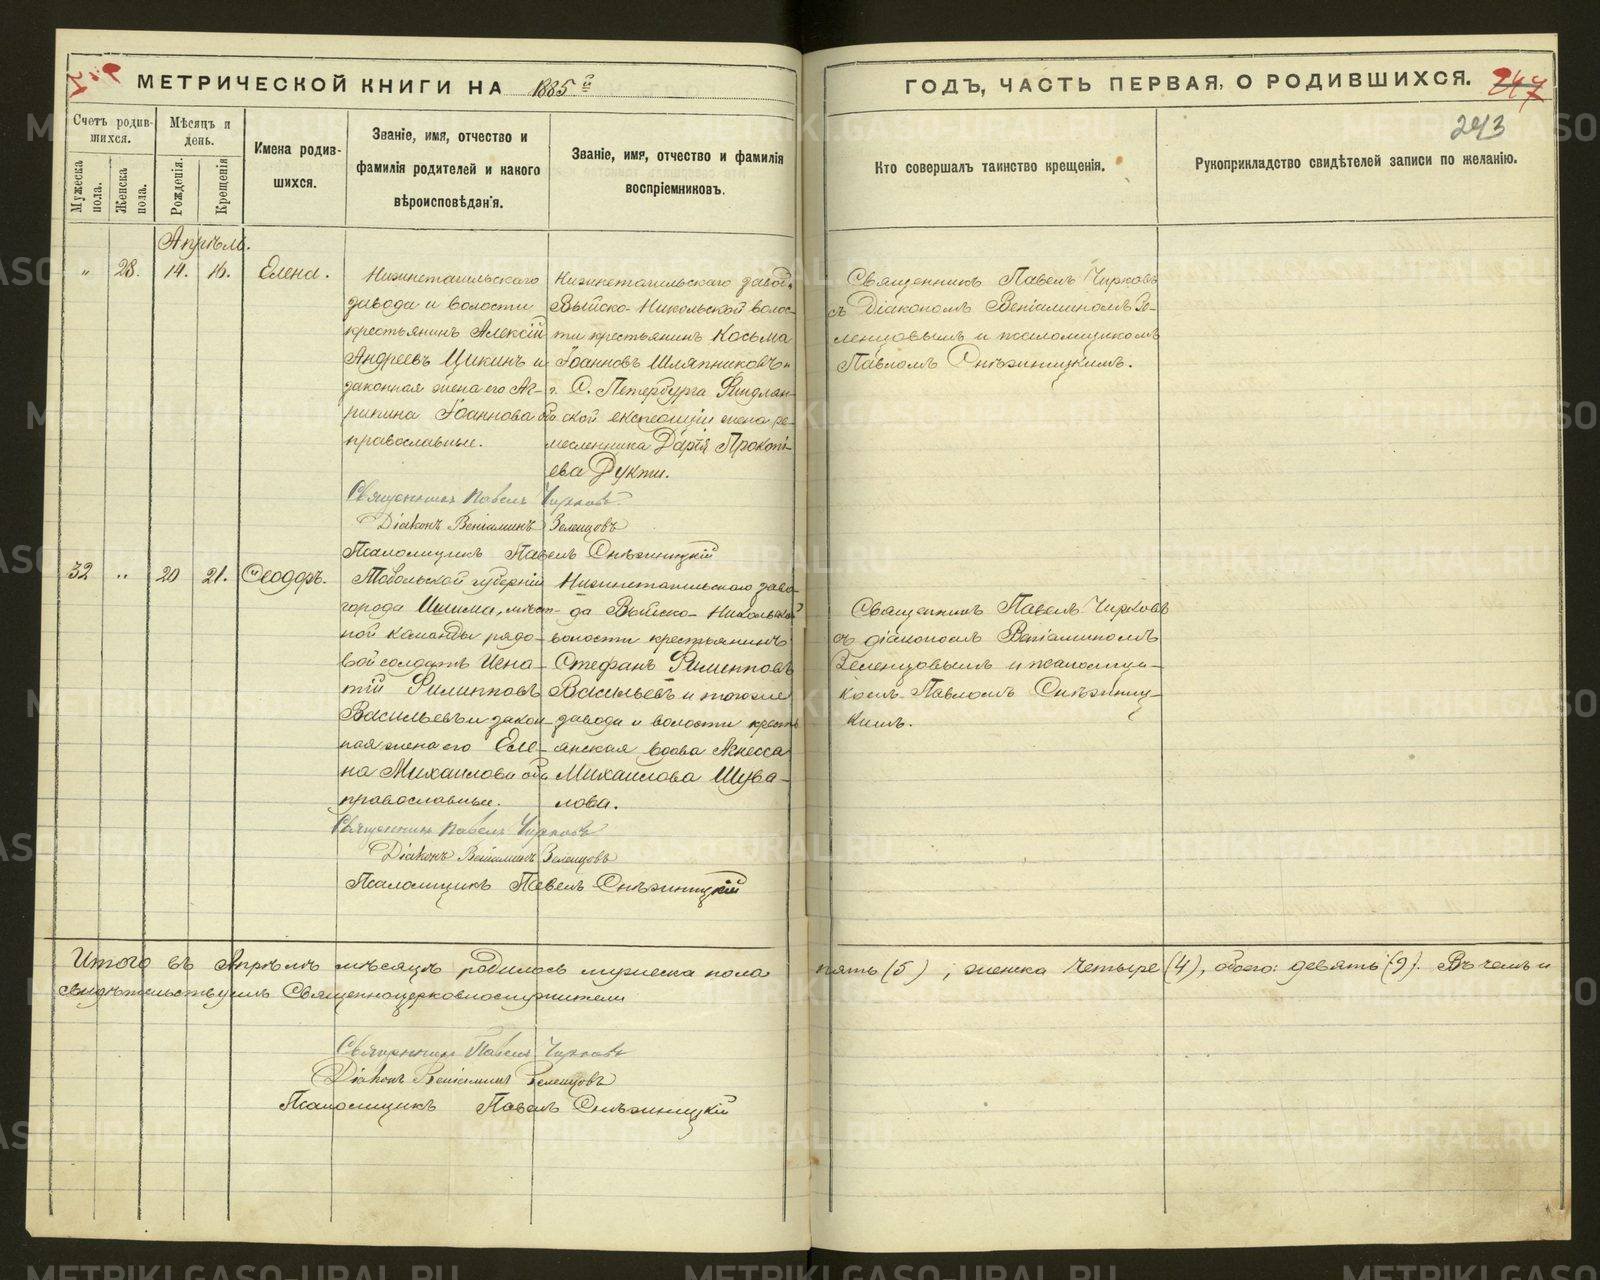 МЕТРИЧЕСКОЙ КНИГИ НА 1885 й
ГОДЪ, ЧАСТЬ ПЕРВАЯ, О РОДИВШИХСЯ.
247
243
Счетъ родив-
шихся.
Мужеска пола.
Женска пола.
Мѣсяцъ и
день.
Рожденія.
Крещенія
Имена родив-
шихся.
Званіе, имя, отчество и
фамилія родителей и какого
вѣроисповѣданія.
Званіе, имя, отчество и фамилія
воспріемниковъ.
Кто совершалъ таинство крещенія.
Рукоприкладство свидѣтелей записи по желанію.
Апрѣль.
" 28. 14. 16. Елена.
Нижнетагильскаго
завода и волости
крестьянинъ Алексій
Андреевъ Цикинъ и
законная жена его Аг-
рипина Іоаннова оба
православные.
Нижнетагильскаго завод.
Выйско-Никольской волос-
ти крестьянинъ Косьма
Іоанновъ Шляпниковъ и
г. С. Петербурга Финдлян-
ской експедиціи жена ре-
месленника Дарія Прокопі-
ева Дукти.
Священникъ Павелъ Чирковъ
съ Діакономъ Веніаминомъ Зе-
ленцовымъ и псаломщикомъ
Павломъ Снѣжницкимъ.
Священникъ Павелъ Чирковъ
Діаконъ Веніаминъ Зеленцовъ
Псаломщикъ Павелъ Снѣжницкій
32 " 20 21. Ѳеодоръ.
Тобольской губерніи
города Ишима, мѣст-
ной команды рядо-
вой солдатъ Игна-
тій Филипповъ
Васильевъ и закон-
ная жена его Еле-
на Михаилова оба
православные.
Нижнетагильскаго заво-
да Выйско-Никольской
волости крестьянинъ
Стефанъ Филипповъ
Васильевъ и тогоже
завода и волости кресть
янская вдова Агнесса
Михаилова Шува-
лова.
Священникъ Павелъ Чирковъ
съ діакономъ Веніаминомъ
Зеленцовымъ и псаломщи-
комъ Павломъ Снѣжниц-
кимъ.
Священникъ Павелъ Чирковъ
Діаконъ Веніаминъ Зеленцовъ
Псаломщикъ Павелъ Снѣжницкій
Итого въ Апрѣлѣ мѣсяцѣ родилось мужеска пола пять (5), женска четыре (4), обоего: девять (9). Въ чемъ и
свидѣтельствуемъ Священноцерковнослужители
Священникъ Павелъ Чирковъ
Діаконъ Веніаминъ Зеленцовъ
Псаломщикъ Павелъ Снѣжницкій
METRIKI.GASO-URAL.RU